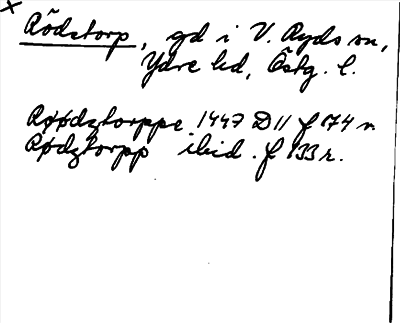 x
Rödstorp, gd i V. Ryds sn,
Ydre hd, Östg. l.
Røødztorppe 1447 D 11 f 174 v
Rødztorpp ibid. f 133 r.